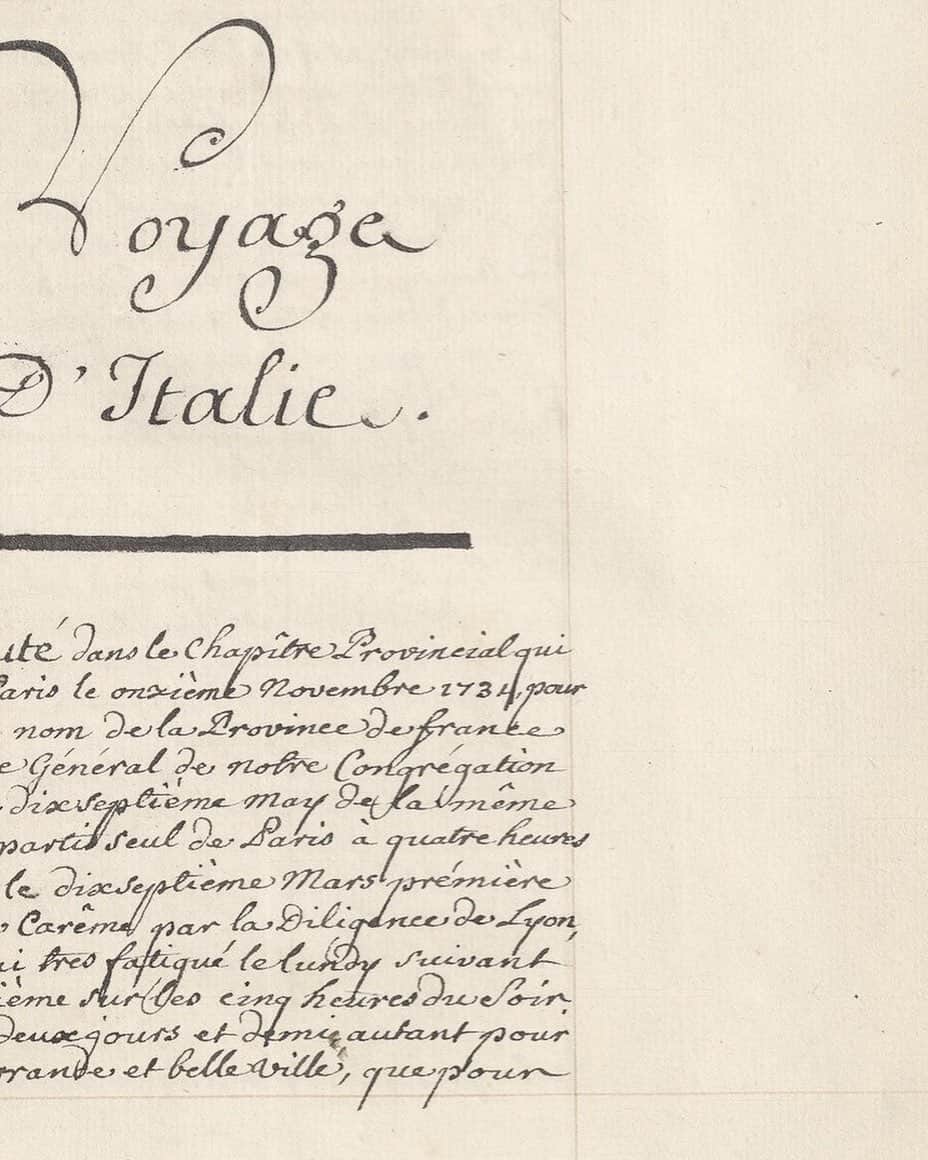 Voyage
D'Italie.
uté dans le Chapître Provincial qui
Paris le onzième Novembre 1734, pour
nom de la Province de france
e Général de notre Congrégation
dixseptième may de la même
parti seul de Paris à quatre heures
le dixseptième Mars prémière
Carême, par la Diligence de Lyon,
ui tres fatigué le lundy suivant
ième sur les cinq heures du Soir
deux jours et demi autant pour
grande et belle ville, que pour